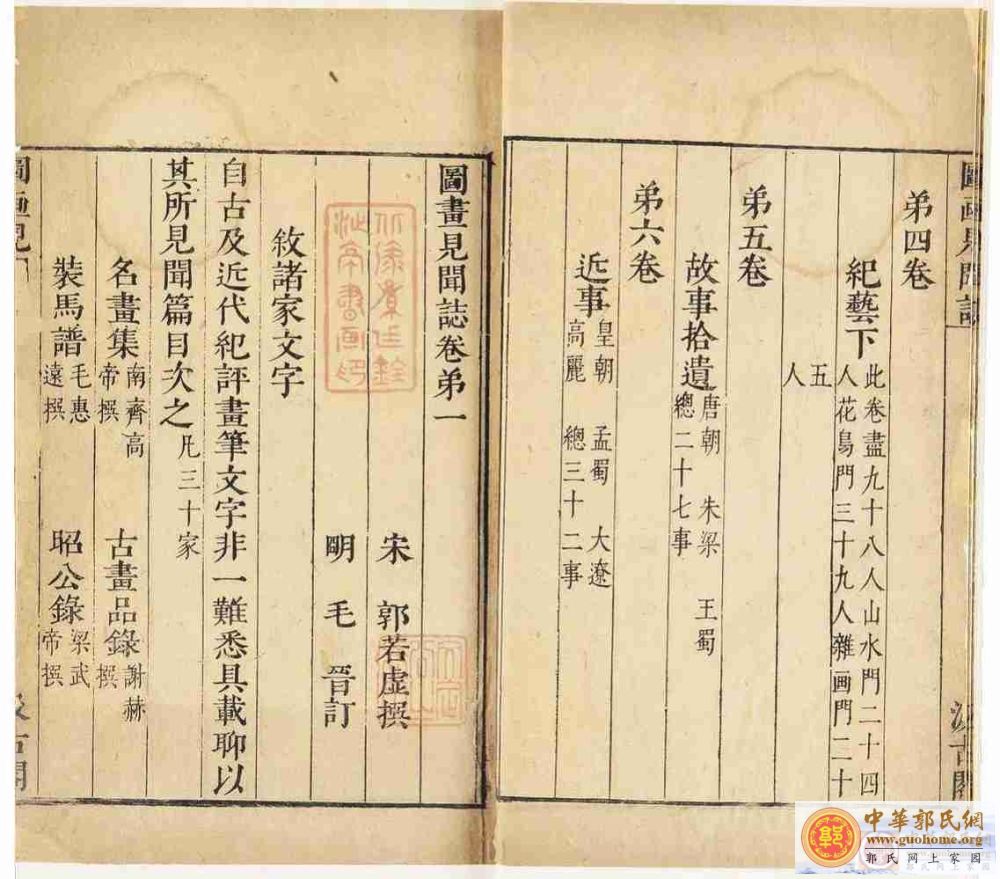 圖画見聞誌 汲古閣
弟四卷
紀藝下 此卷盡九十八人山水門二十四
人花鳥門三十九人雜画門二十
五
人
弟五卷
故事拾遺 唐朝 朱梁 王蜀
總二十七事
弟六卷
近事 皇朝 孟蜀 大遼
高麗 總三十二事
圖畫見聞誌卷弟一
宋 郭若虛撰
明 毛 晉訂
敘諸家文字
自古及近代紀評畫筆文字非一難悉具載聊以
其所見聞篇目次之 凡三十家
名畫集 南齊高
帝撰
古畫品錄 謝赫
撰
裝馬譜 毛惠
遠撰
昭公錄 梁武
帝撰
圖画見 汲古閣
中華郭氏網
www.guohome.org
郭氏网上家园